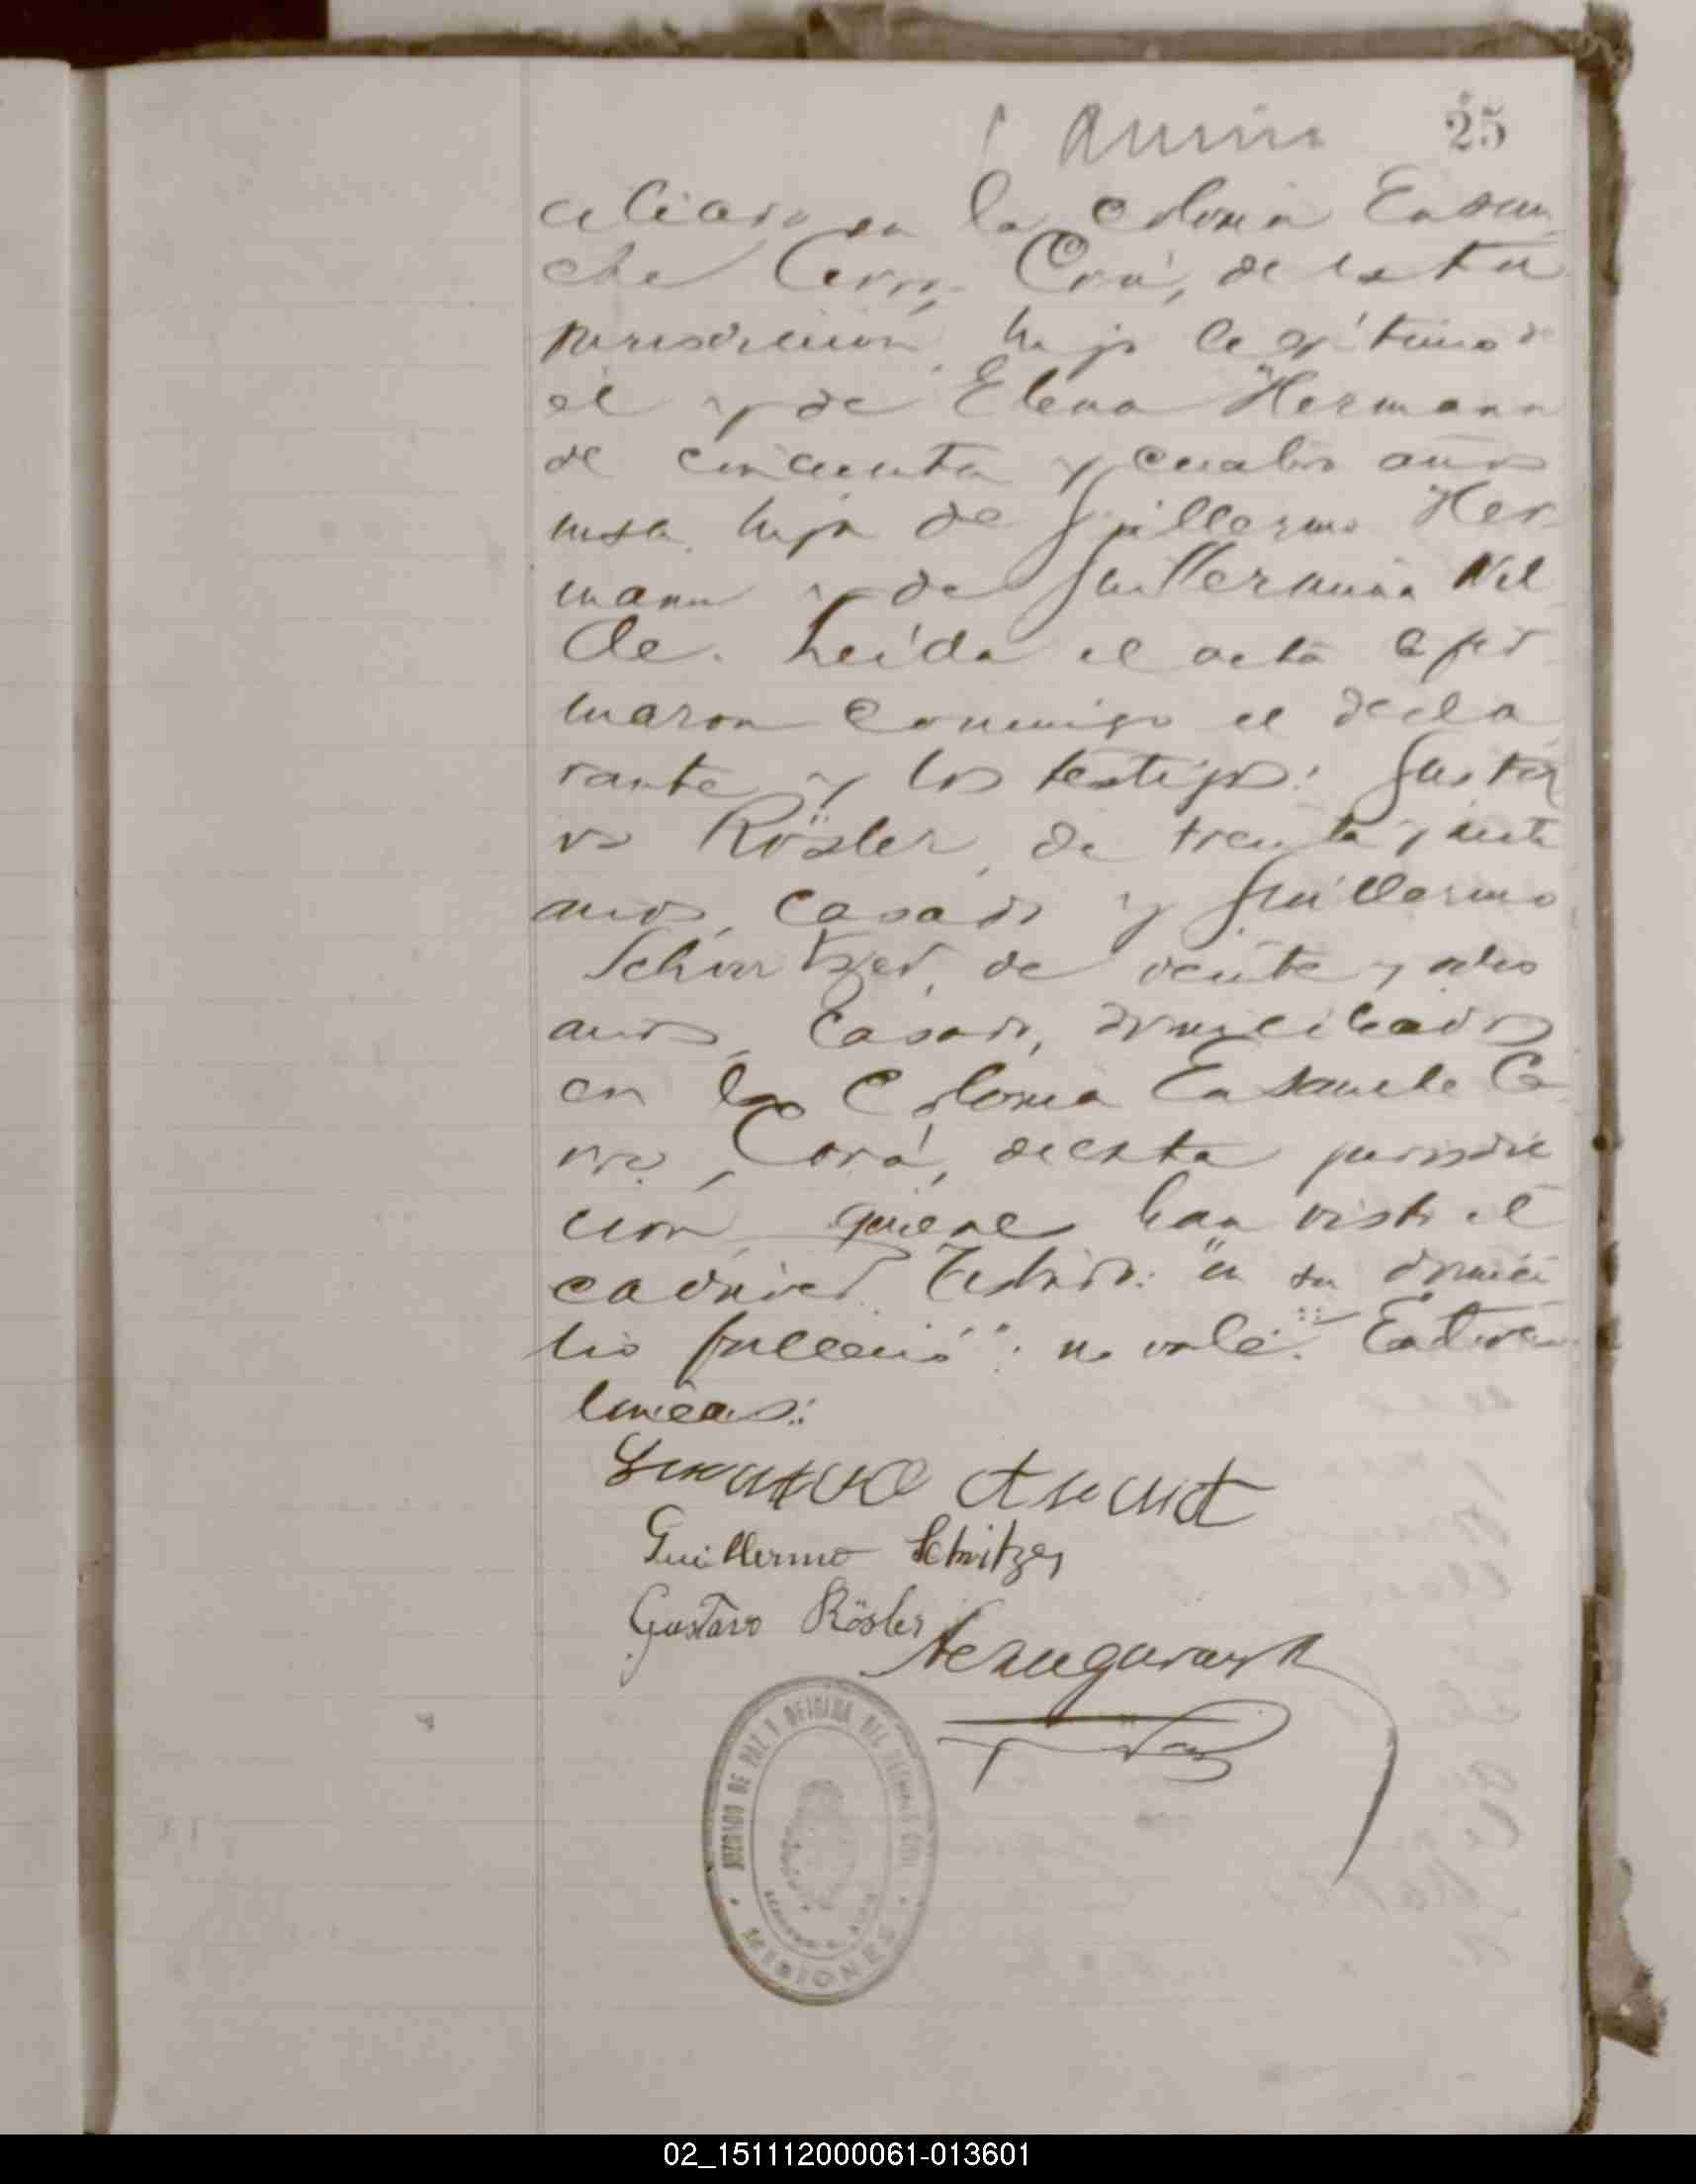 25
ciliado en la colonia Ensan
che Cerro Corá, de esta
jurisdicción, hijo legítimo de
él y de Elena Hermann
de cincuenta y cuatro años
rusa, hija de Guillermo Her
mann y de Guillermina Nil
de. Leída el acta la fir
maron conmigo el decla
rante y los testigos: Gusta
vo Rösler, de treinta y siete
años, casado y Guillermo
de veinte y ocho
años, casado, domiciliados
en la Colonia Ensanche Ce
rro Corá, de esta jurisdic
ción, quienes han visto el
cadáver. Testado: "en su domici
lio falleció": no vale. Entre
lineas:
Guillermo
Gustavo Rösler
JUZGADO DE PAZ Y OFICINA DEL REGISTRO CIVIL
MISIONES
02_151112000061-013601